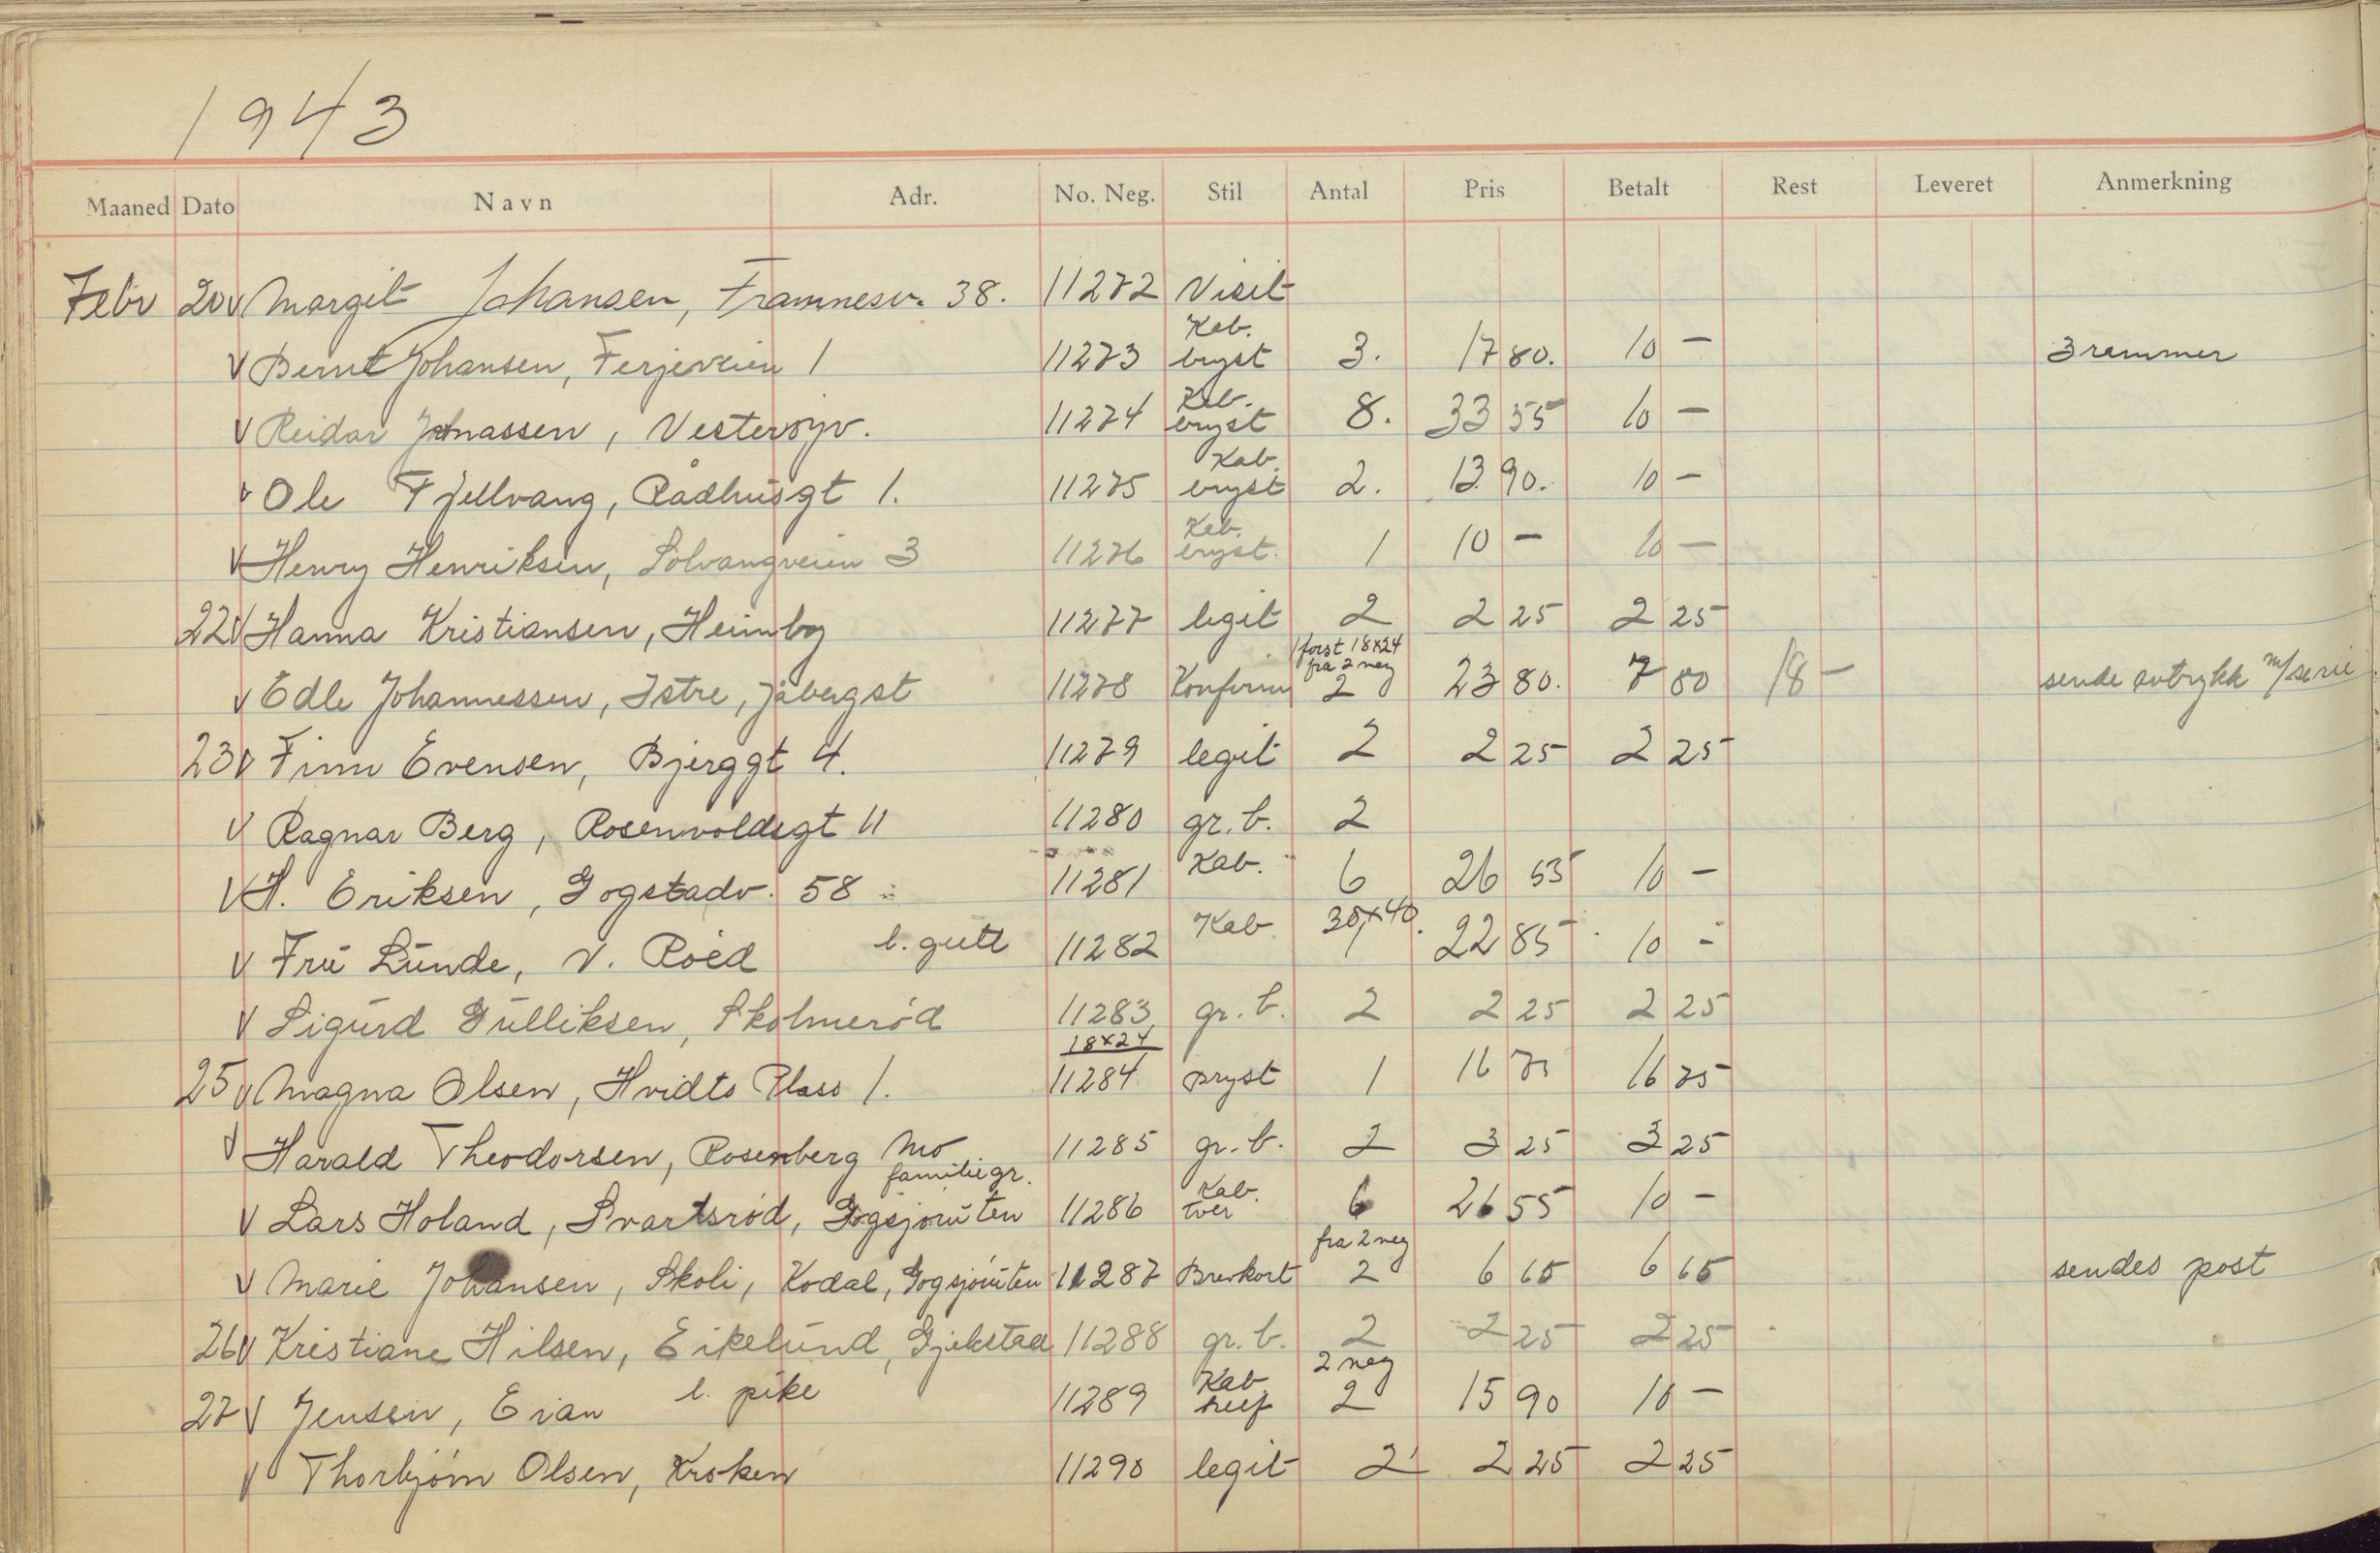 1943
Maaned Dato Navn Adr. No. Neg. Stil Antal Pris Betalt Rest Leveret Anmerkning
Febr 20 V Margit Johansen, Framnesv. 38. 11272 Visit
V Bernt Johansen, Ferjeveien 1 11273 Kab. bryst 3. 17 80. 10 - 3 rammer
V Reidar Jonassen, Vesterøyv. 11274 Kab. bryst 8. 33 55 10 -
V Ole Fjellvang, Rådhusgt 1. 11275 Kab. bryst 2. 13 90. 10 -
V Henry Henriksen, Solvangveien 3 11276 Kab. bryst. 1 10 - 10 -
22 V Hanna Kristiansen, Heimby 11277 legit 2 2 25 2 25
1 forst 18x24 fra 2 neg
V Edle Johannessen, Istre, Jåbergst 11278 Konferm 2 23 80. 7 80 18 - sende avtrykk m/serie
23 V Finn Evensen, Bjerggt 4. 11279 legit 2 2 25 2 25
V Ragnar Berg, Rosenvoldsgt 11 11280 gr. b. 2
V H. Eriksen, Gogstadv. 58 11281 Kab. 6 26 55 10 -
V Fru Lunde, V. Røed l. gutt 11282 Kab 30x40. 1 22 85 10 -
V Sigurd Gulliksen, Skolmerød 11283 gr. b. 2 2 25 2 25
18x24
25 V Magna Olsen, Hvidts Plass 1. 11284 bryst 1 16 75 16 75
V Harald Theodorsen, Rosenberg Mo 11285 gr. b. 2 3 25 3 25
familiegr.
V Lars Holand, Svartsrød, Gogsjøruten 11286 Kab. tver 6 26 55 10 -
fra 2 neg
V Marie Johansen, Skoli, Kodal, Gogsjøruten 11287 Brevkort 2 6 65 6 65 sendes post
26 V Kristiane Hilsen, Eikelund, Gjekstad 11288 gr. b. 2 2 25 2 25
2 neg
27 V Jensen, Eian l. pike 11289 Kab. 2 15 90 10 -
V Thorbjørn Olsen, Kroken 11290 legit 2 2 25 2 25